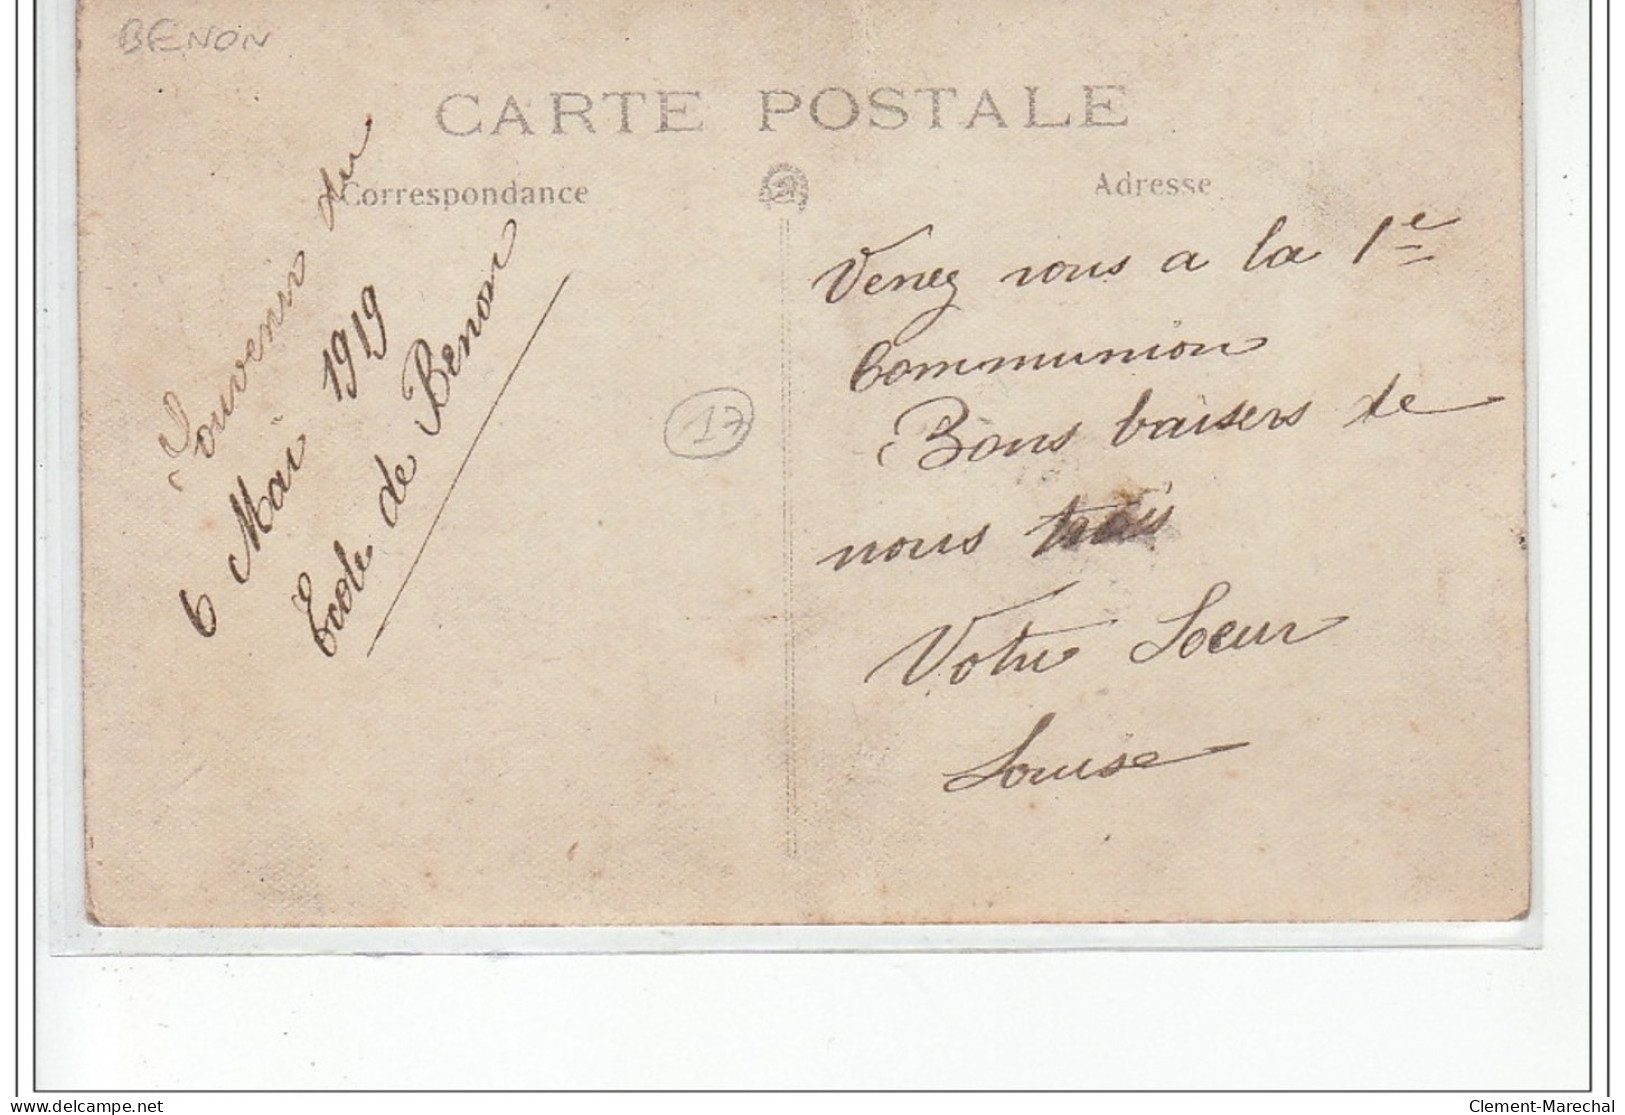 BENON
CARTE POSTALE
Correspondance
Adresse
Souvenir du
6 Mai 1919
École de Benon
17
Venez vous a la 1e
Communion
Bons baisers de
nous trois
Votre Soeur
Louise
Clement-Marechal